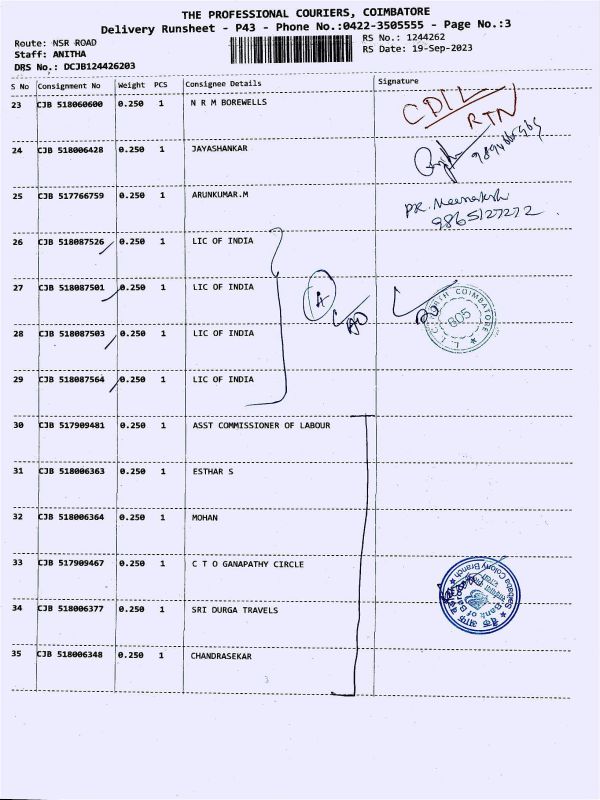 THE PROFESSIONAL COURIERS, COIMBATORE
Delivery Runsheet - P43 - Phone No.:0422-3505555 - Page No.:3
Route: NSR ROAD
RS No.: 1244262
Staff: ANITHA
RS Date: 19-Sep-2023
DRS No.: DCJB124426203
S No Consignment No Weight PCS Consignee Details Signature
23 CJB 518060600 0.250 1 N R M BOREWELLS
CDLL
RTN
24 CJB 518006428 0.250 1 JAYASHANKAR
25 CJB 517766759 0.250 1 ARUNKUMAR.M
PR. Meenakshi
9865127272
26 CJB 518087526 0.250 1 LIC OF INDIA
27 CJB 518087501 0.250 1 LIC OF INDIA
4
L.I.C. NORTH COIMBATORE
28 CJB 518087503 0.250 1 LIC OF INDIA
29 CJB 518087564 0.250 1 LIC OF INDIA
30 CJB 517909481 0.250 1 ASST COMMISSIONER OF LABOUR
31 CJB 518006363 0.250 1 ESTHAR S
32 CJB 518006364 0.250 1 MOHAN
33 CJB 517909467 0.250 1 C T O GANAPATHY CIRCLE
34 CJB 518006377 0.250 1 SRI DURGA TRAVELS
Bank of Baroda
Colony Branch
35 CJB 518006348 0.250 1 CHANDRASEKAR